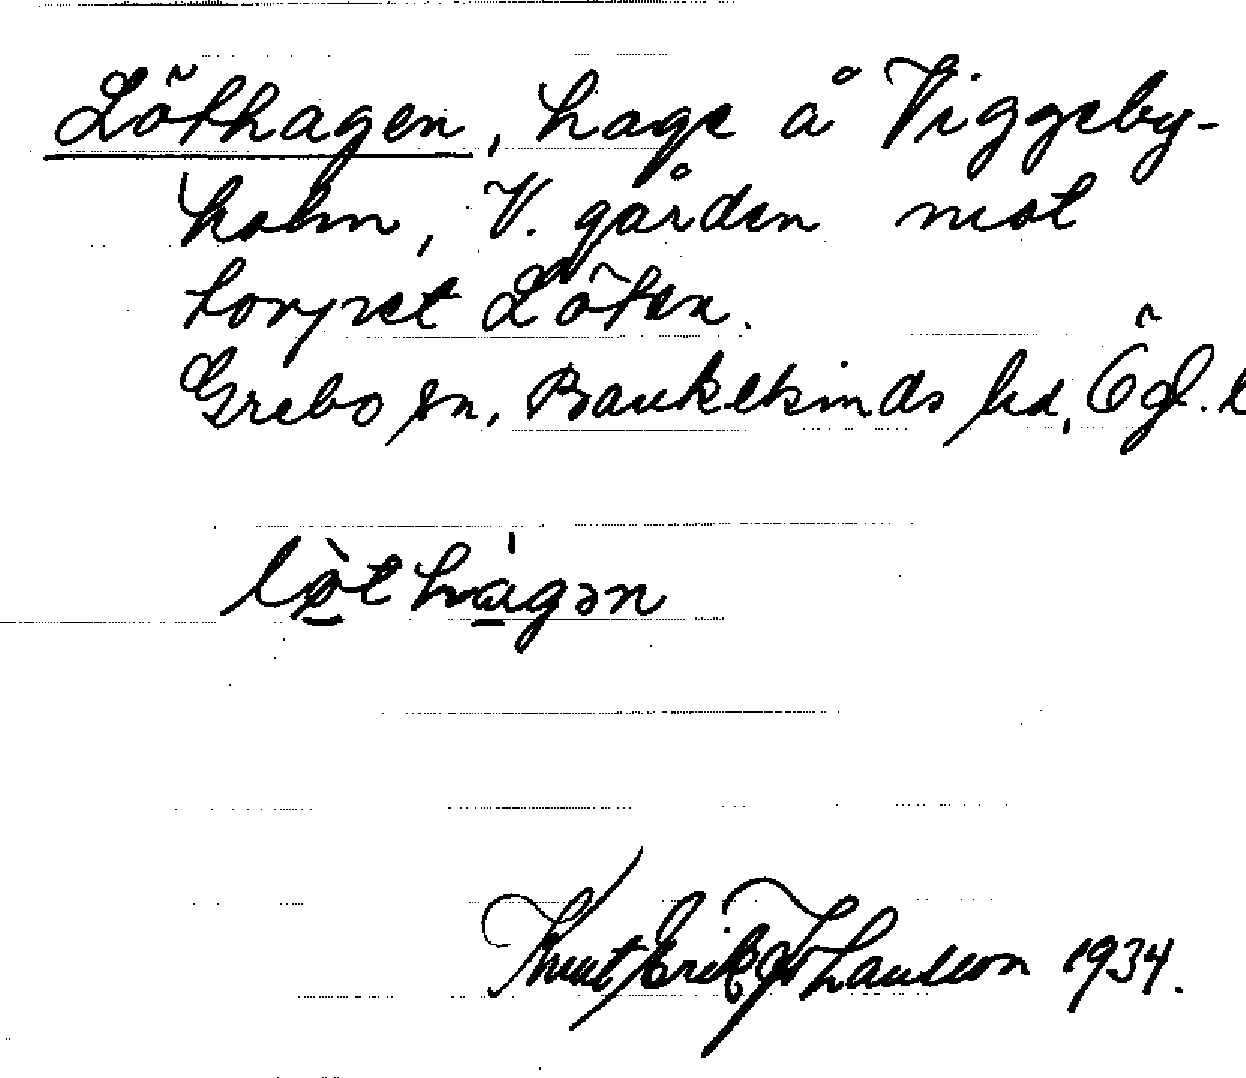 Löthagen, hage å Viggeby-
holm, V. gården mot
torpet Löten.
Grebo sn, Bankekinds hd, Ögl. l
lø̀t hàgən
Knut Erik Johansson 1934.